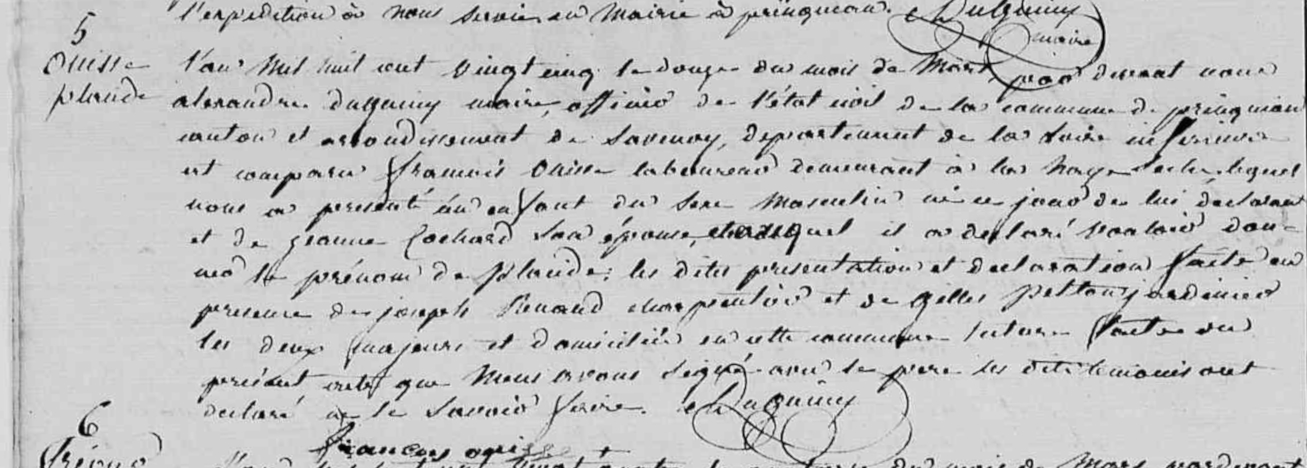 l'expédition à nous servie en mairie à prinquiau. Duguiny
maire
5
Ouisse
plaude
l'an mil huit cent vingt cinq le douze du mois de Mars par devant nous
alexandre duguiny maire, officier de l'état civil de la commune de prinquiau
canton et arrondissement de Savenay, departement de la Loire inferieure
est comparu francois Ouisse laboureur demeurant à la haye lequel
nous a presenté un enfant du sexe Masculin né ce jour de lui déclarant
et de jeanne Cochard son épouse, et auquel il a declaré vouloir don-
ner le prénom de plaude; les dites presentation et declaration faite en
presence de joseph Renaud charpentier et de gilles pelton jardinier
les deux majeurs et domiciliés en cette commune lecture faite du
présent acte que Nous avons signé avec le pere les dits temoins ont
declaré ne le savoir faire. Duguiny
francois ouisse
6